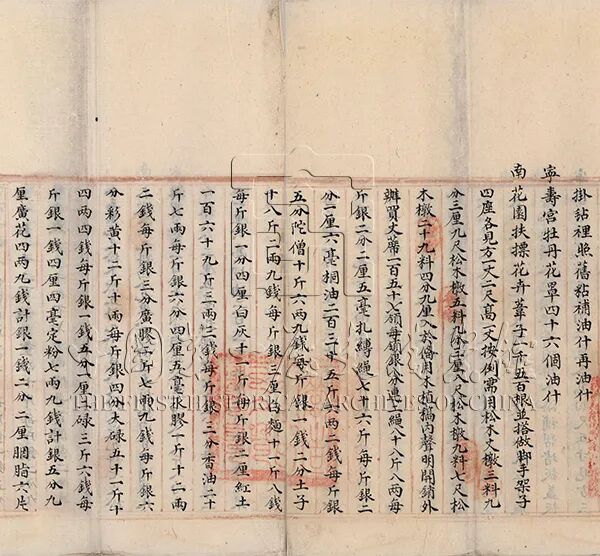 掛毡裡照舊毡補油什再油什
寧壽宮牡丹花罩四十六個油什
南花園扶摽花卉葦子一千五百根並搭做脚手架子
四座各見方一丈二尺高一丈按例需用松木丈橔三料九
分三厘九尺松木橔五料九分三厘八尺松木橔九料七尺松
木橔二十九料四分九厘入於傋用木植稿内聲明開銷外
辦買丈席一百五十八領每領銀八分連二繩八十八斤八兩每
斤銀二分二厘五毫扎縛繩七十六斤每斤銀二
分一厘六毫桐油二百三十五斤四兩二錢每斤銀
五分陀僧十斤六兩九錢每斤銀一錢二分土子
十八斤二兩九錢每斤銀三厘白麵十一斤八錢
每斤銀一分四厘白灰十一斤每斤銀二厘紅土
一百六十九斤三兩三錢每斤銀二分香油二十
斤七兩每斤銀六分四厘五毫水膠一斤十二兩
二錢每斤銀三分廣膠三斤七兩九錢每斤銀六
分彩黄十二斤十兩每斤銀四分大碌五十一斤十
四兩四錢每斤銀一錢五分二厘二碌三斤六錢每
斤銀一錢四厘四毫定粉七兩九錢計銀五分九
厘廣花四兩九錢計銀一錢二分二厘胭脂六片
THE FIRST HISTORICAL ARCHIVES OF CHINA